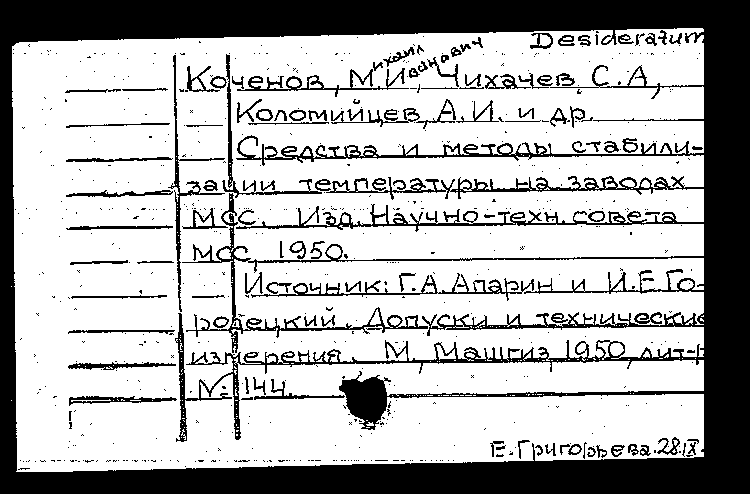 Desideratum
Михаил Иванович
Коченов, М.И., Чихачев, С.А,
Коломийцев, А.И. и др.
Средства и методы стабили-
зации температуры на заводах
МСС. Изд. Научно-техн. совета
МСС, 1950.
Источник: Г.А. Апарин и И.Е Го-
родецкий. Допуски и технические
измерения. М., Машгиз, 1950, лит-р
№ 144.
Е. Григорьева. 28.IX.